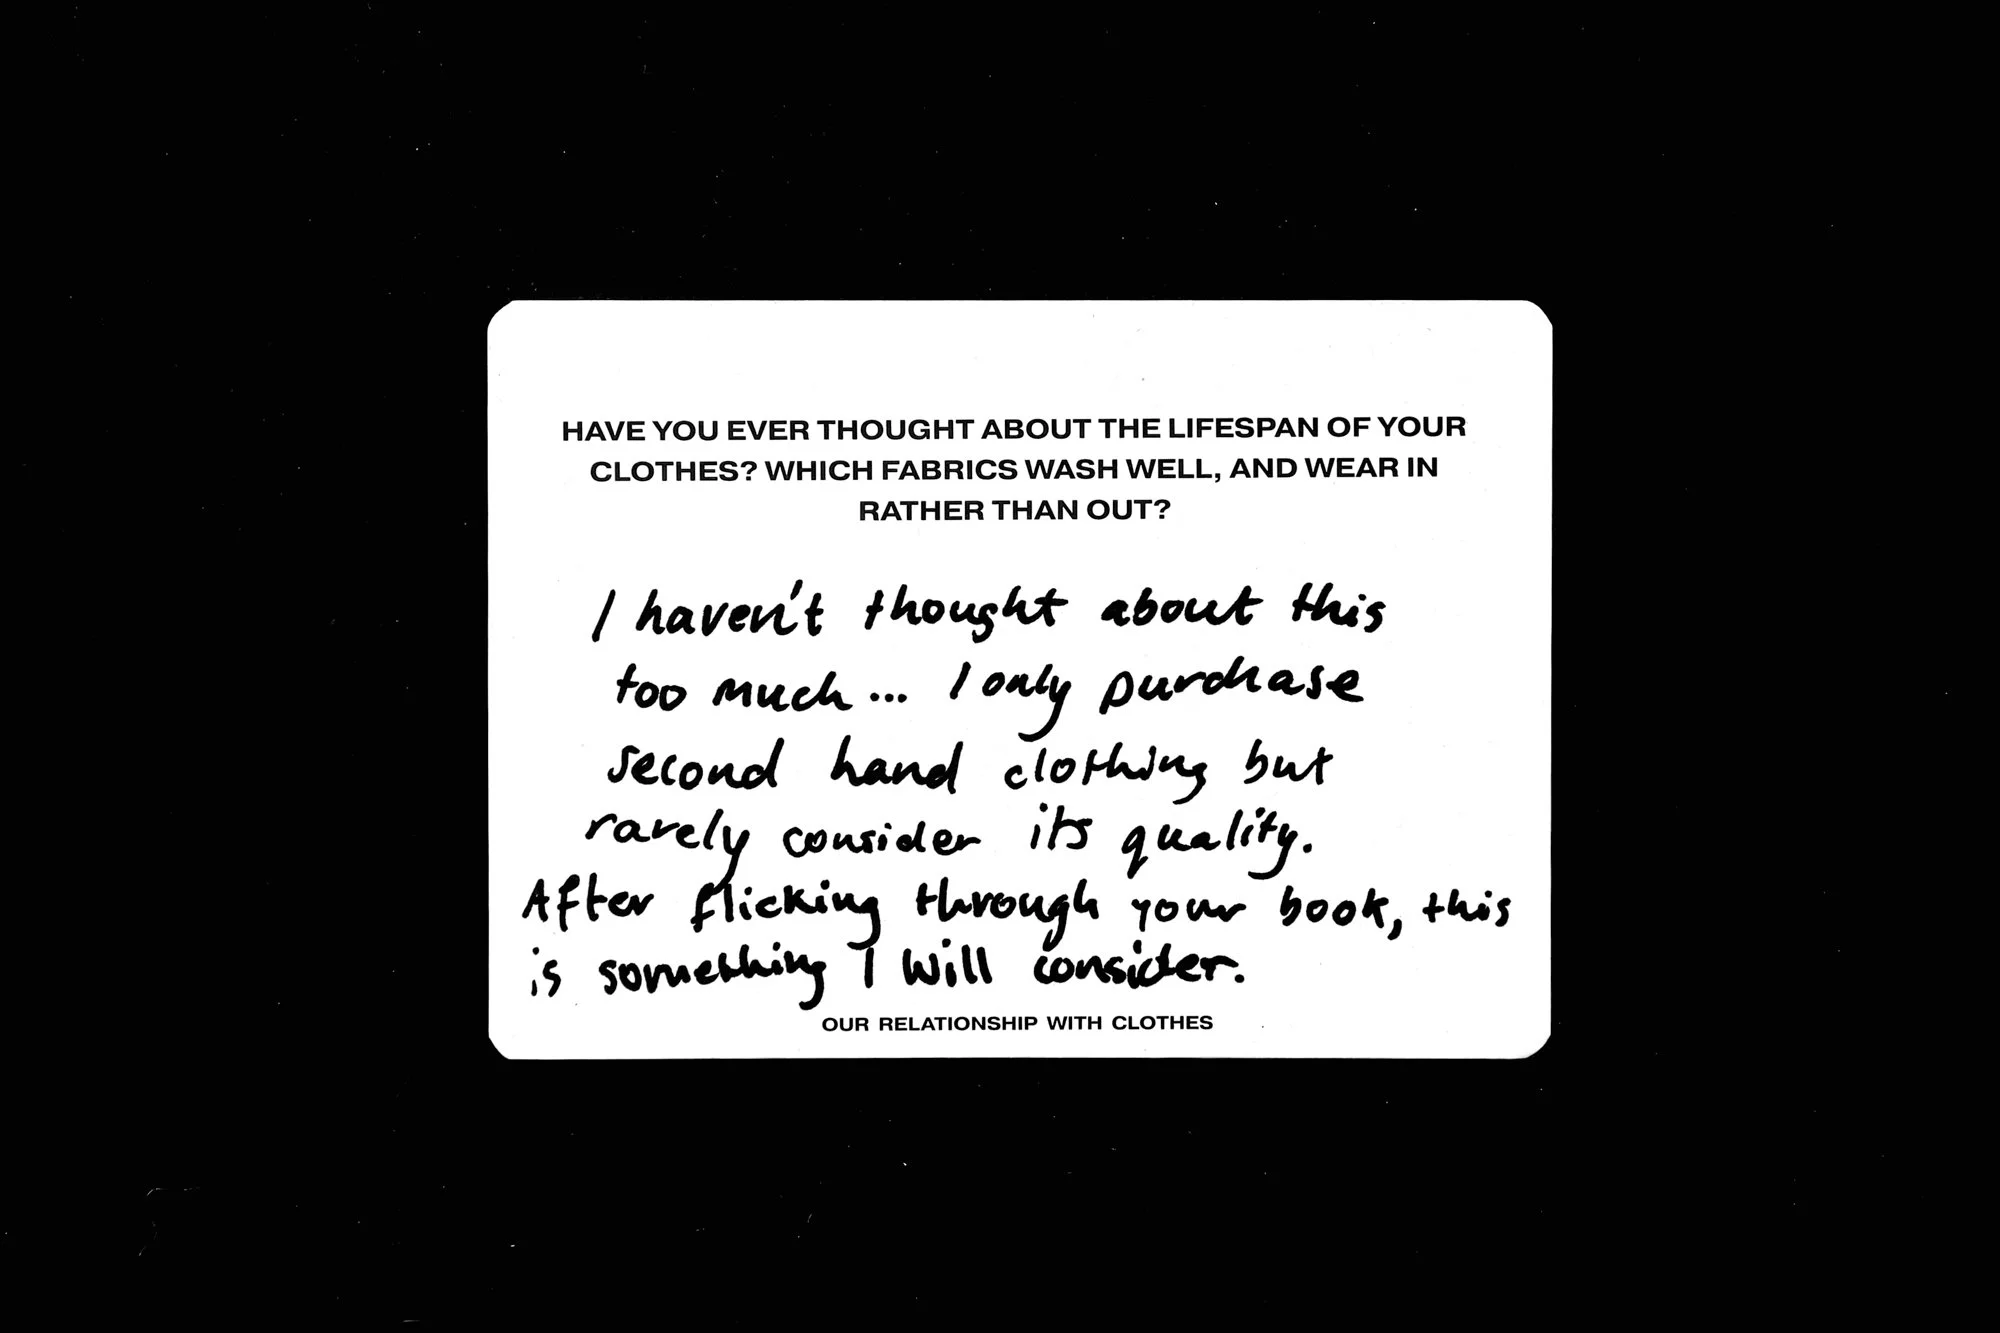 HAVE YOU EVER THOUGHT ABOUT THE LIFESPAN OF YOUR
CLOTHES? WHICH FABRICS WASH WELL, AND WEAR IN
RATHER THAN OUT?
I haven't thought about this
too much... I only purchase
second hand clothing but
rarely consider its quality.
After flicking through your book, this
is something I will consider.
OUR RELATIONSHIP WITH CLOTHES